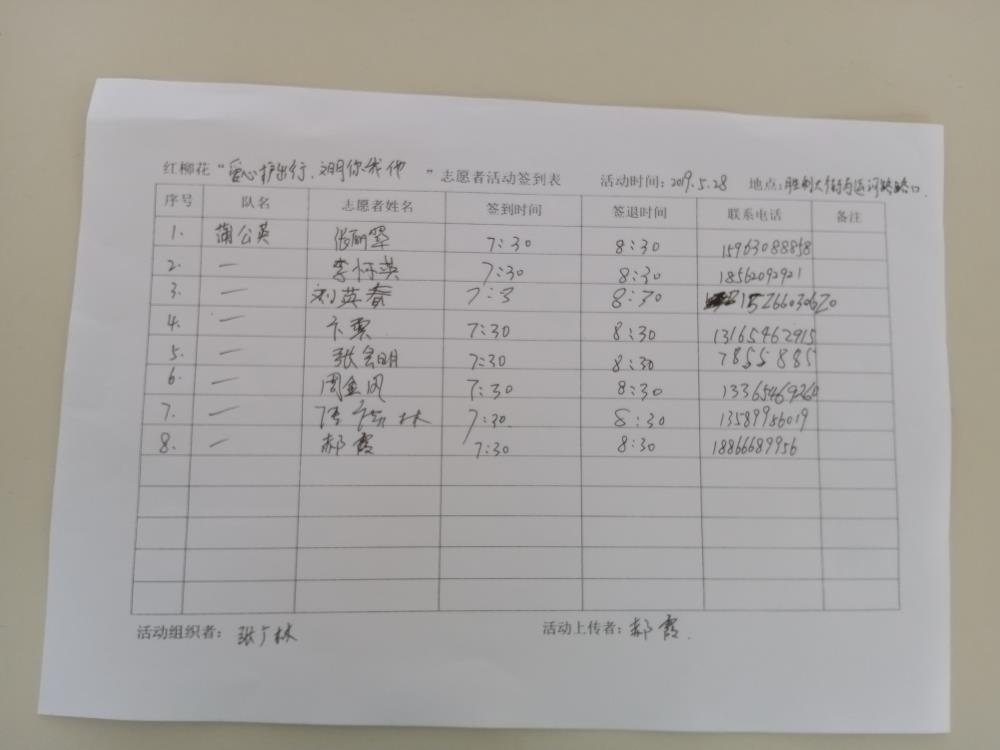 红柳花“爱心护出行、文明你我他”志愿者活动签到表 活动时间:2019.5.28 地点:胜利大街与运河路路口.
序号 队名 志愿者姓名 签到时间 签退时间 联系电话 备注
1. 蒲公英 张丽翠 7:30 8:30 15963088858
2. — 李怀英 7:30 8:30 18562092921
3. — 刘英春 7:3 8:30 15266030620
4. — 卞 7:30 8:30 13165462915
5. — 张会明 7:30 8:30 7855885
6. — 周金凤 7:30 8:30 13365469260
7. — 林 7:30. 8:30 13589956019
8. — 郝霞 7:30 8:30 18866689956
活动组织者: 张广林 活动上传者: 郝霞.